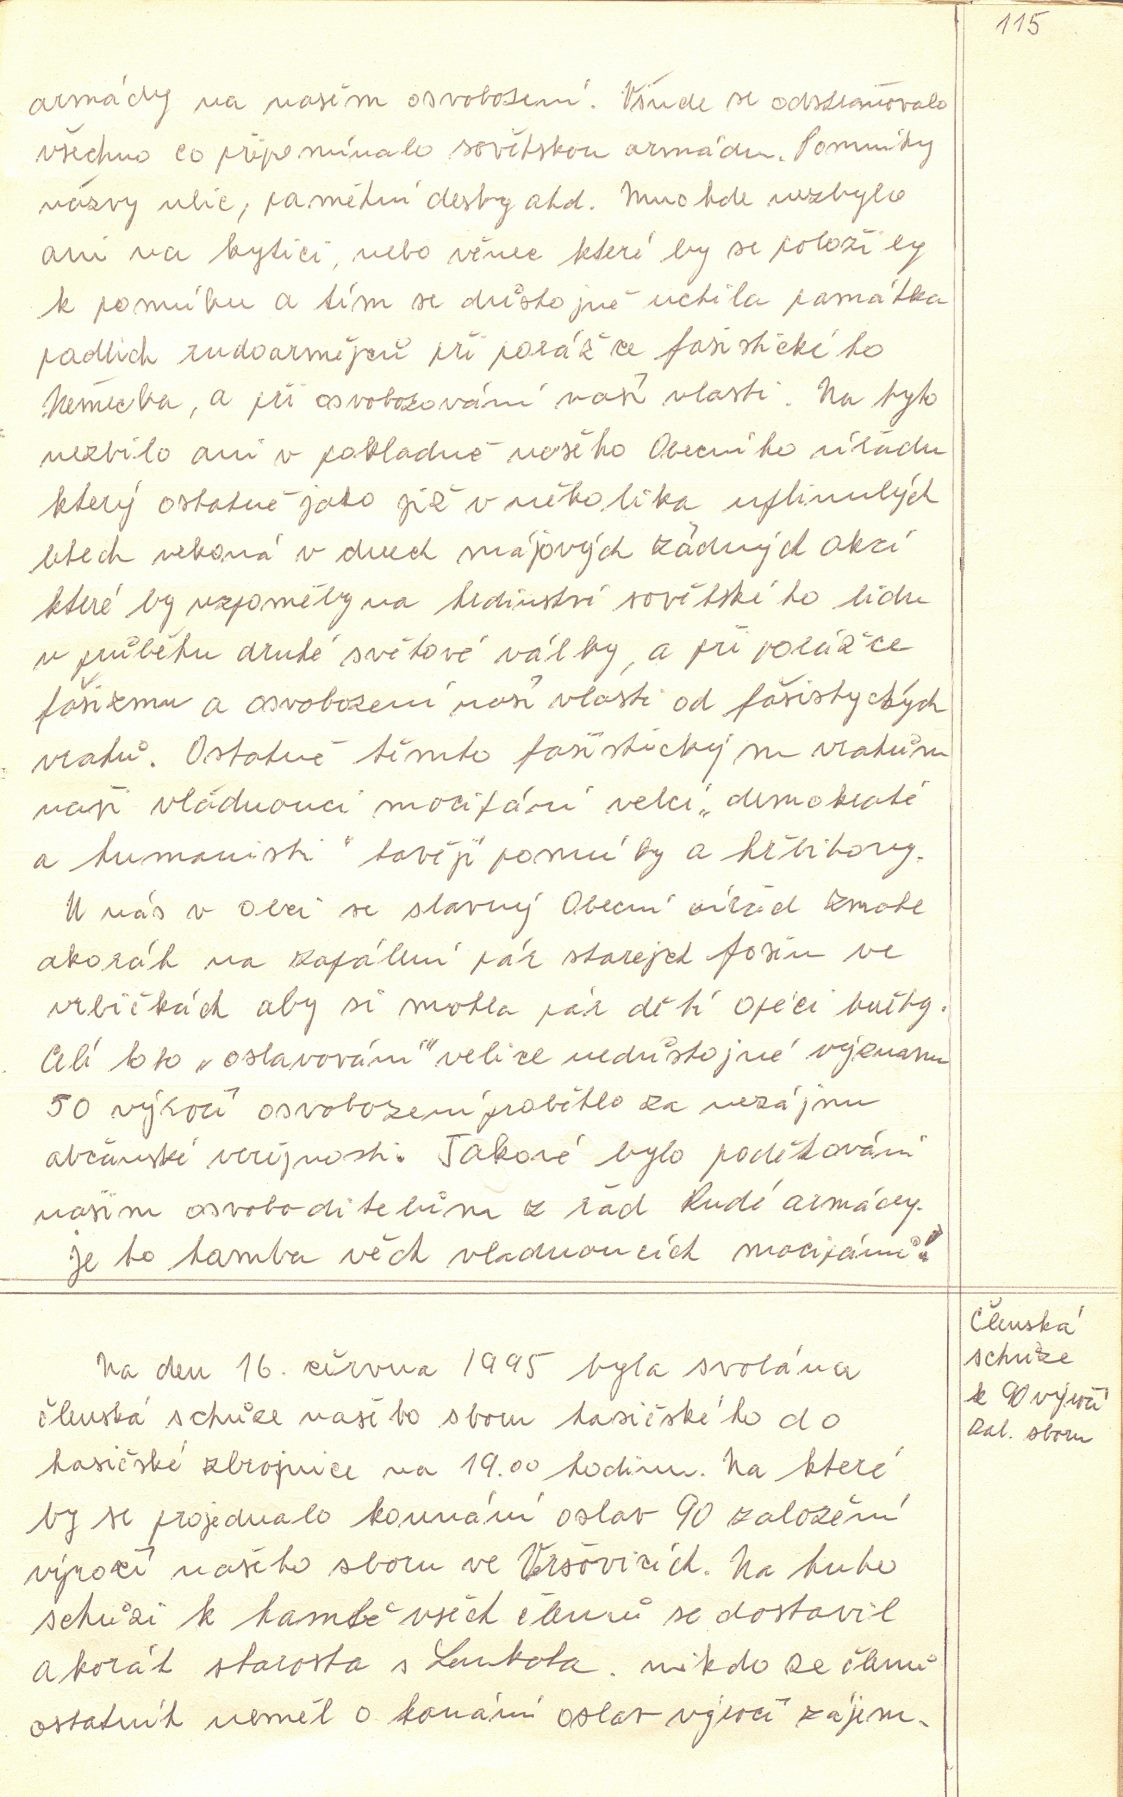 115
armády na našém osvobození. Všude se odstraňovalo
všechno co připomínalo sovětskou armádu. Pomníky
názvy ulic, pamětní desky atd. Mnohde nezbylo
ani na kytici, nebo věnec které by se položily
k pomníku a tím se důstojně uctila památka
padlich rudoarmějců při porážce fašistického
Německa, a při osvobozování naší vlasti. Na byto
nezbilo ani v pokladně našeho Obecního úřadu
který ostatně jako již v několika uplinulých
letech nekoná v dnech májových žádných akcí
které by vzpoměly na hrdinství sovětského lidu
v průběhu druhé světové války, a při porážce
fašizmu a osvobození naší vlasti od fašistyckých
vrahů. Ostatně těmto fašistickým vrahům
naší vládnoucí mocipání velcí „demokraté
a humanisti" stavějí pomníky a hřbitovy.
U nás v obci se slavný Obecní úřad zmohl
akorát na zapálení pár starejch fošin ve
vrbičkách aby si mohla pár dětí opéci buřty.
Celí toto „oslavování" velice nedůstojné významu
50 výročí osvobození proběhlo za nezájmu
občanské veřejnosti. Takové bylo poděkování
našim osvoboditelům z řad Rudé armády.
je to hamba věch vladnoucích mocipánů!
Členská
schuze
k 90 výročí
zal. sboru
Na den 16. června 1995 byla svolána
členská schůze našeho sboru hasičského do
hasičské zbrojnice na 19.00 hodinu. Na které
by se projednalo konnání oslav 90 založení
výročí našeho sboru ve Vršovicích. Na tuho
schůzi k hambě všech členů se dostavil
akorát starosta s Lankota. nikdo ze členů
ostatních neměl o konání oslav výročí zájem.